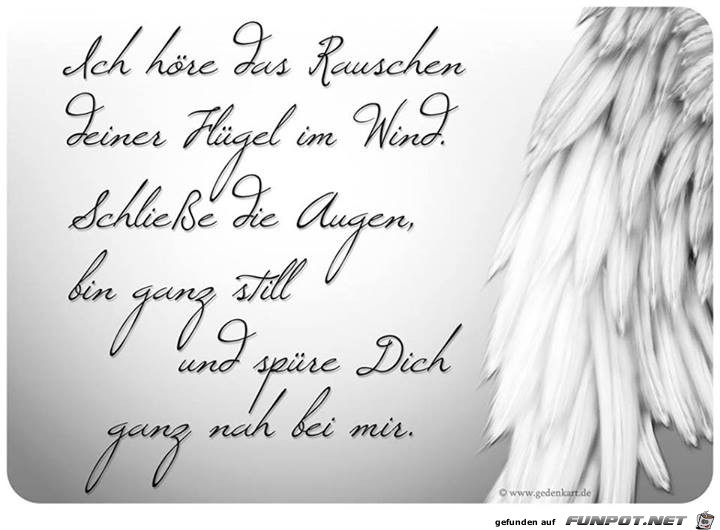 Ich höre das Rauschen
deiner Flügel im Wind.
Schließe die Augen,
bin ganz still
und spüre Dich
ganz nah bei mir.
© www.gedenkart.de
gefunden auf FUNPOT.NET